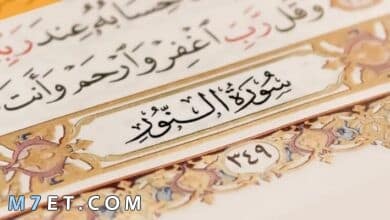 حِسَابُهُۥ عِندَ رَبِّ
وَقُل رَّبِّ ٱغْفِرْ وَٱرْحَمْ وَأَنتَ
سُورَةُ النُّورِ
٣٤٩
M7ET.COM